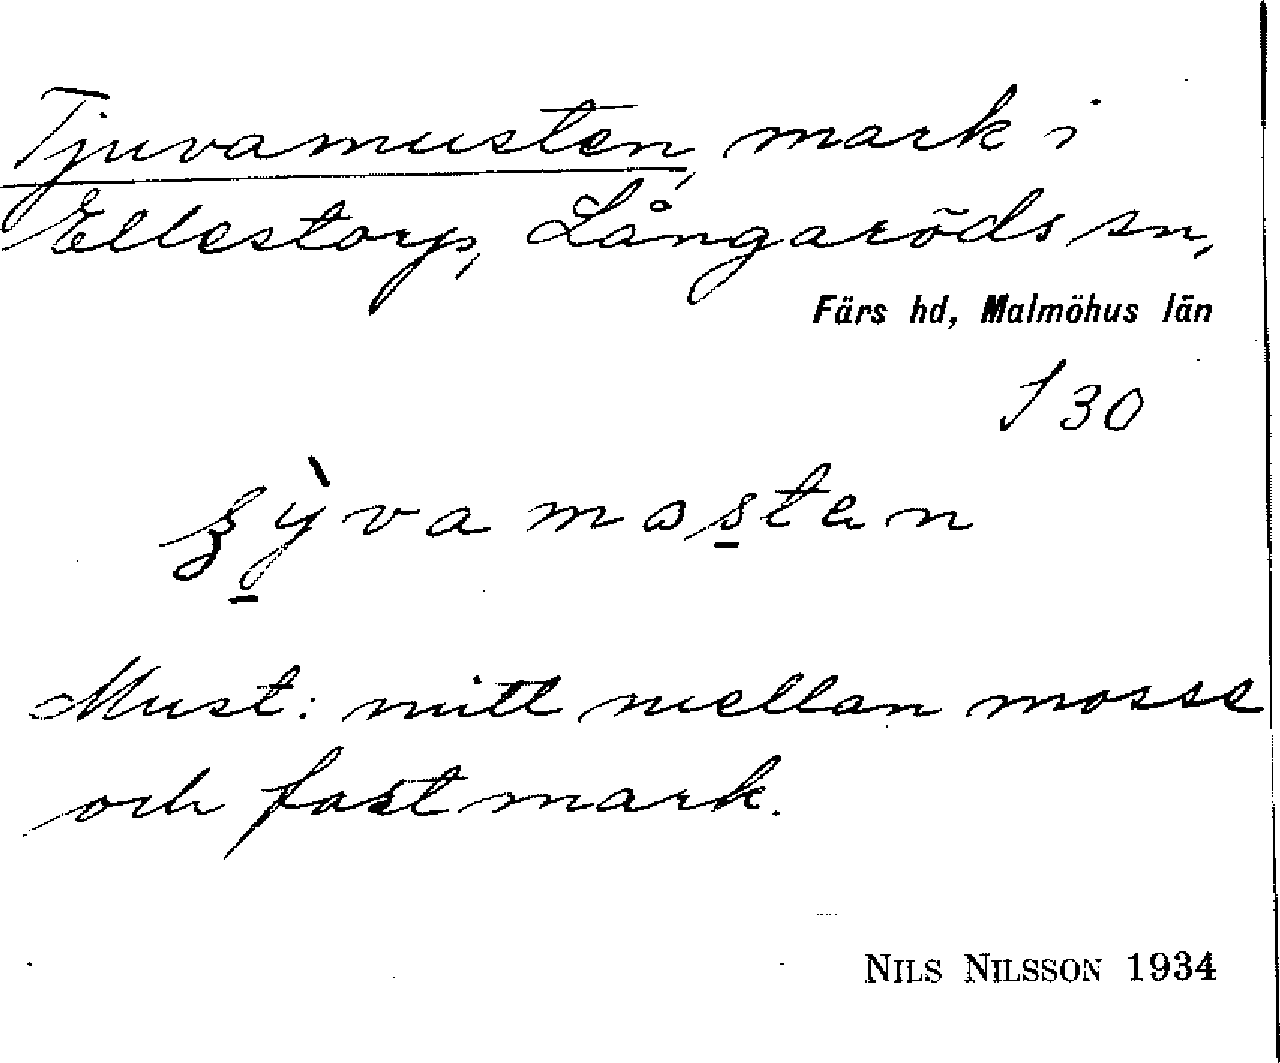 Tjuvamusten, mark i
Ellestorp, Långaröds sn,
Färs hd, Malmöhus län
130
Must: mitt mellan mosse
och fast mark.
NILS NILSSON 1934